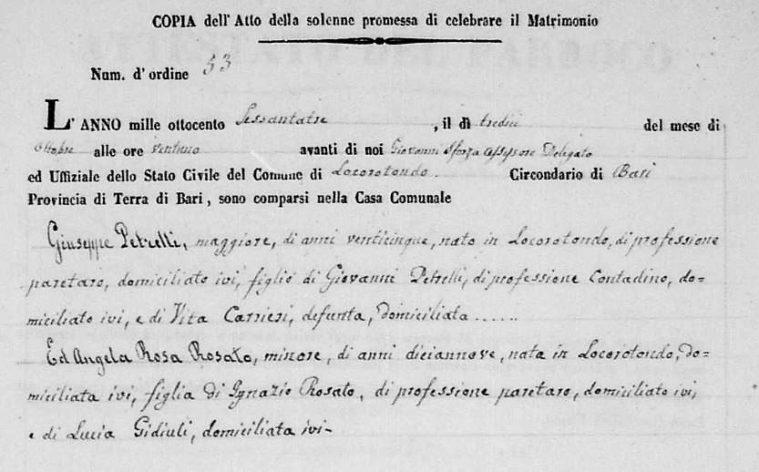 COPIA dell' Atto della solenne promessa di celebrare il Matrimonio
Num. d' ordine 53
L' ANNO mille ottocento Sessantatre , il dì tredici del mese di
Ottobre alle ore ventuno avanti di noi Giovanni Sforza Assessore Delegato
ed Uffiziale dello Stato Civile del Comune di Locorotondo. Circondario di Bari
Provincia di Terra di Bari, sono comparsi nella Casa Comunale
Giuseppe Petrelli, maggiore, di anni venticinque, nato in Locorotondo, di professione
paretaro, domiciliato ivi, figlio di Giovanni Petrelli, di professione Contadino, do=
miciliato ivi, e di Vita Carrieri, defunta, domiciliata ......
Ed Angela Rosa Rosato, minore, di anni diciannove, nata in Locorotondo, do=
miciliata ivi, figlia di Ignazio Rosato, di professione paretaro, domiciliato ivi,
e di Lucia Gidiuli, domiciliata ivi-